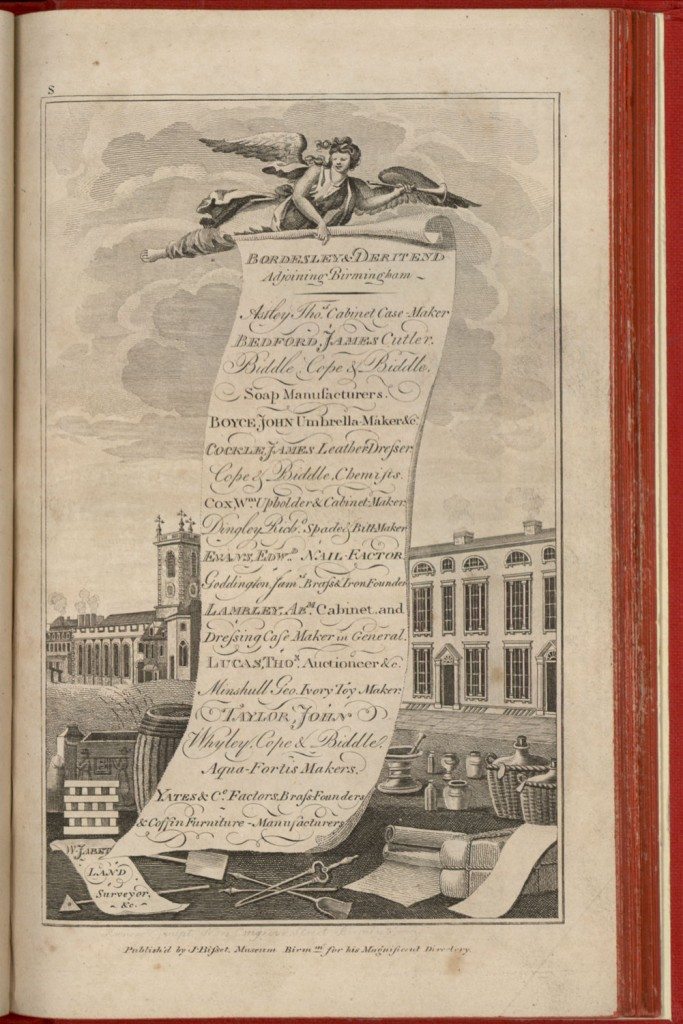 S
BORDESLEY & DERITEND
Adjoining Birmingham
Astley Thos. Cabinet Case-Maker
BEDFORD, JAMES Cutler.
Biddle, Cope & Biddle,
Soap Manufacturers.
BOYCE, JOHN Umbrella-Maker &c.
COCKLE, JAMES Leather Dresser
Cope & Biddle, Chemists.
COX, Wm. Upholder & Cabinet Maker.
Dingley Richd. Spade & Bitt Maker
EVANS, EDWD. NAIL-FACTOR
Goddington Jams. Brass & Iron Founder
LAMBLEY, ABm. Cabinet, and
Dressing Case Maker in General.
LUCAS, THOs. Auctioneer &c.
Minshull Geo. Ivory Toy Maker.
TAYLOR, JOHN
Whyley, Cope & Biddle,
Aqua-Fortis Makers.
YATES & Co. Factors, Brass-Founders
& Coffin Furniture-Manufacturers
W. JABET
LAND
Surveyor,
&c.
Publish'd by J. Bisset, Museum Birmm. for his Magnificent Directory.